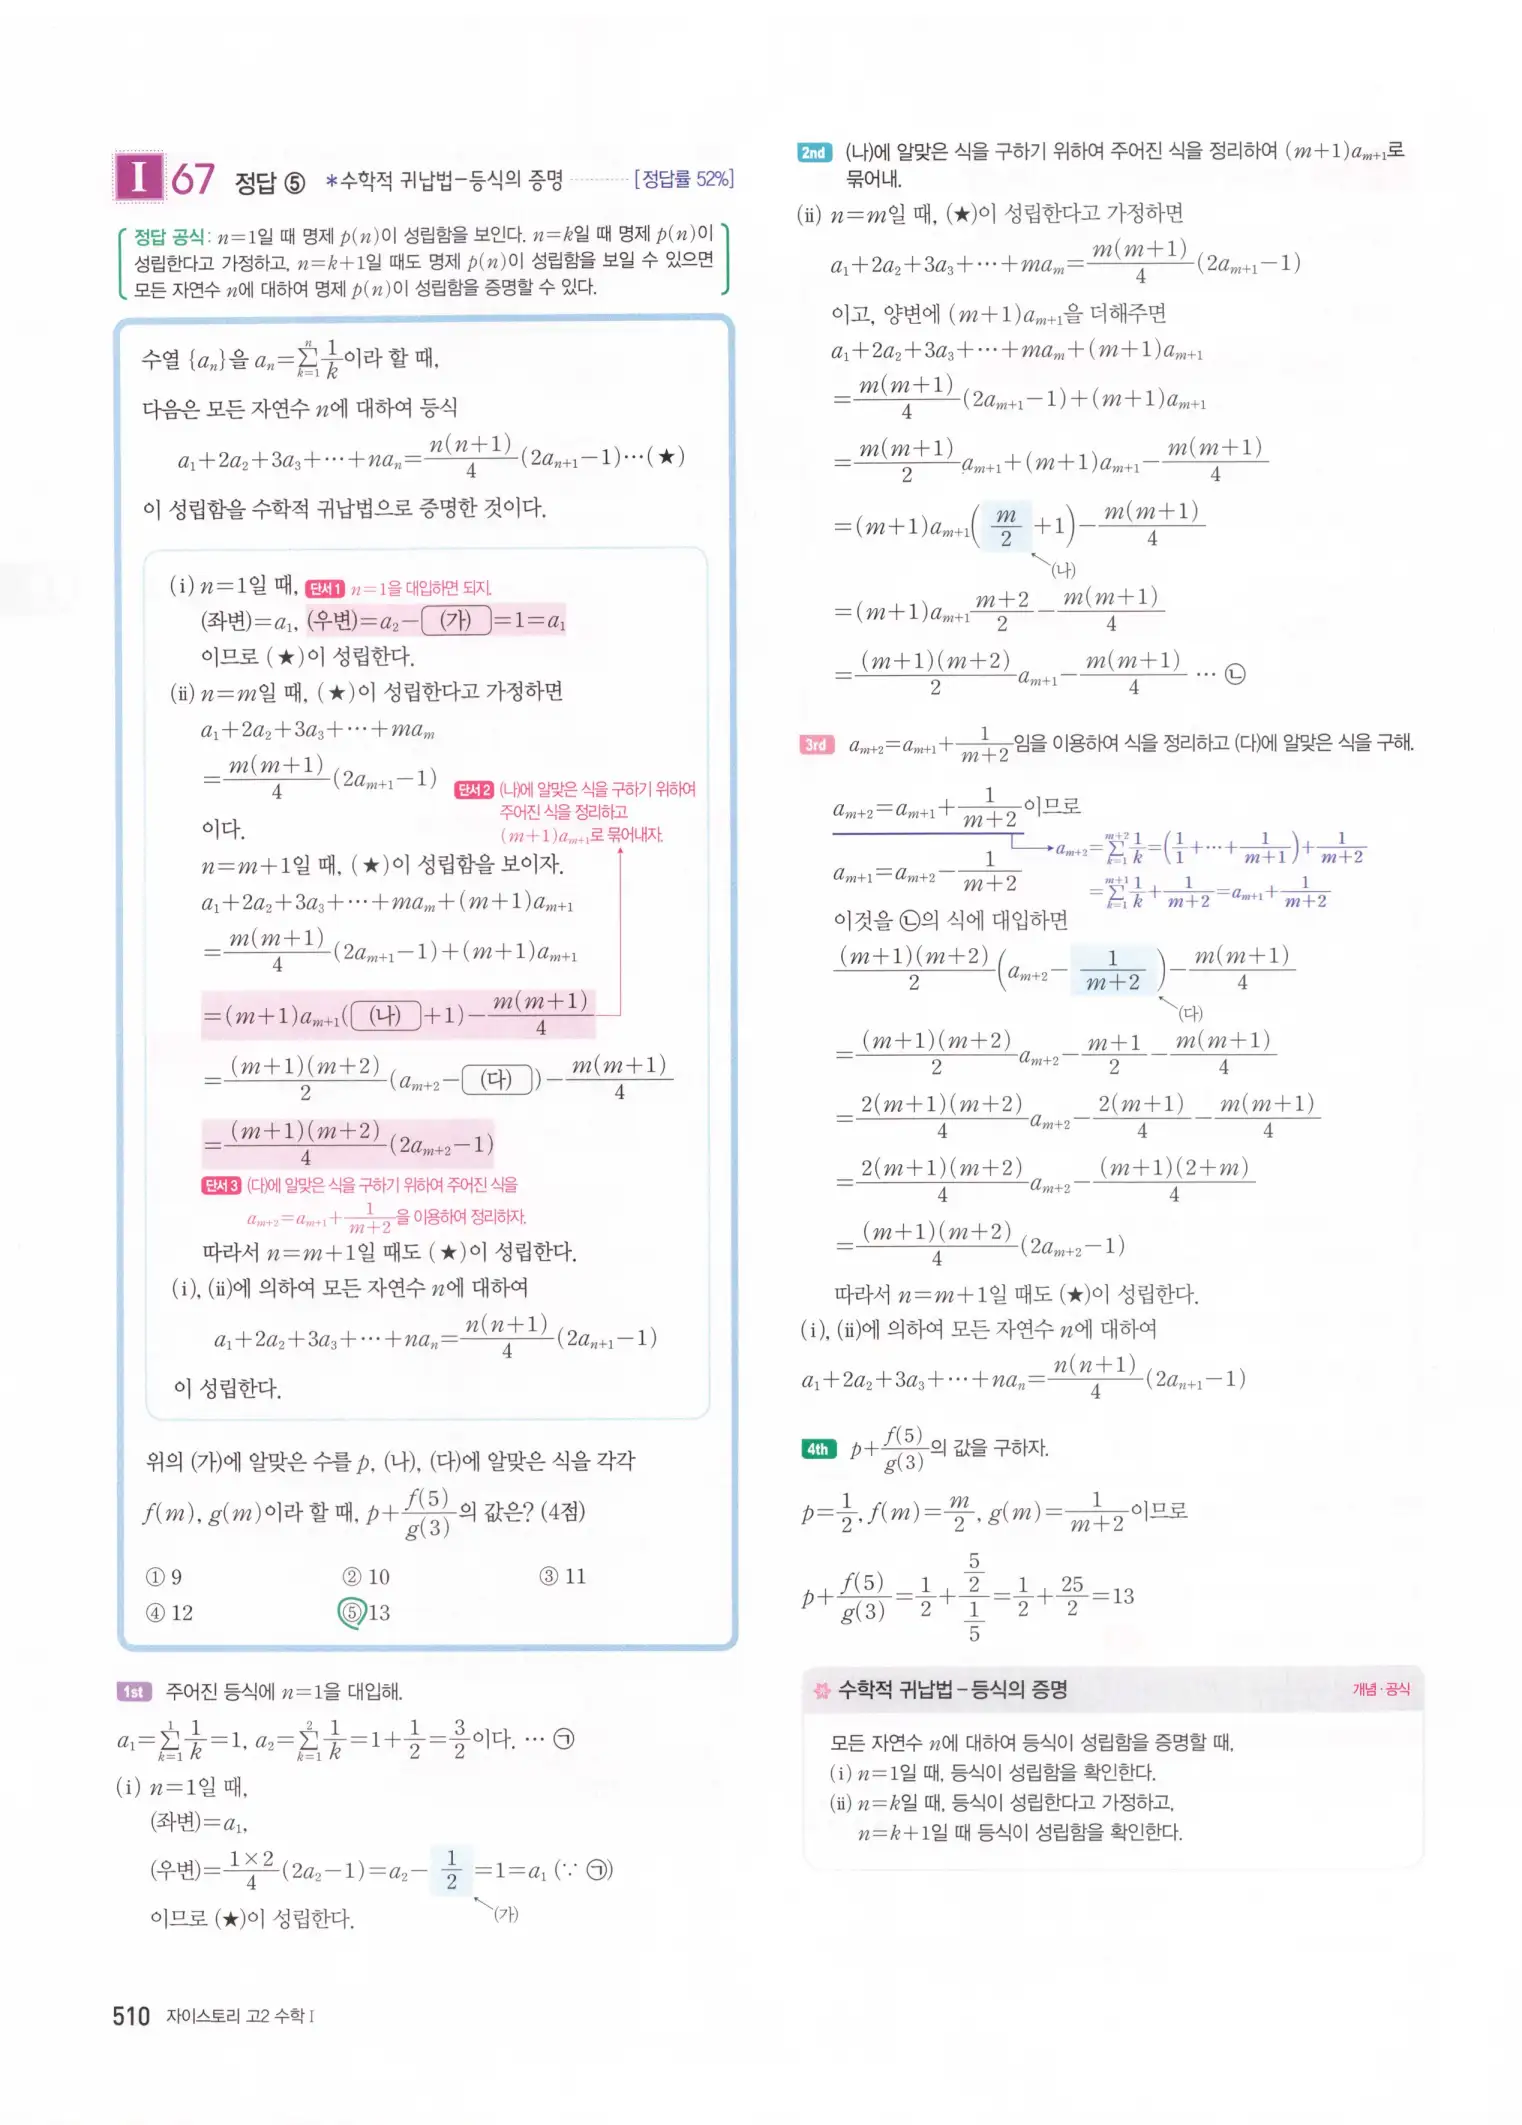 I 67 정답 ⑤ *수학적 귀납법-등식의 증명 ············ [정답률 52%]
정답 공식: n=1일 때 명제 p(n)이 성립함을 보인다. n=k일 때 명제 p(n)이
성립한다고 가정하고, n=k+1일 때도 명제 p(n)이 성립함을 보일 수 있으면
모든 자연수 n에 대하여 명제 p(n)이 성립함을 증명할 수 있다.
수열 {aₙ}을 aₙ=∑_{k=1}^{n} 1/k이라 할 때,
다음은 모든 자연수 n에 대하여 등식
a₁+2a₂+3a₃+⋯+naₙ=n(n+1)/4(2aₙ₊₁-1)⋯(★)
이 성립함을 수학적 귀납법으로 증명한 것이다.
(i) n=1일 때, 단서1 n=1을 대입하면 되지.
(좌변)=a₁, (우변)=a₂-(가)=1=a₁
이므로 (★)이 성립한다.
(ii) n=m일 때, (★)이 성립한다고 가정하면
a₁+2a₂+3a₃+⋯+maₘ
=m(m+1)/4(2aₘ₊₁-1)
단서2 (나)에 알맞은 식을 구하기 위하여
주어진 식을 정리하고
(m+1)aₘ₊₁로 묶어내자.
이다.
n=m+1일 때, (★)이 성립함을 보이자.
a₁+2a₂+3a₃+⋯+maₘ+(m+1)aₘ₊₁
=m(m+1)/4(2aₘ₊₁-1)+(m+1)aₘ₊₁
=(m+1)aₘ₊₁((나)+1)-m(m+1)/4
=(m+1)(m+2)/2(aₘ₊₂-(다))-m(m+1)/4
=(m+1)(m+2)/4(2aₘ₊₂-1)
단서3 (다)에 알맞은 식을 구하기 위하여 주어진 식을
aₘ₊₂=aₘ₊₁+1/(m+2)을 이용하여 정리하자.
따라서 n=m+1일 때도 (★)이 성립한다.
(i), (ii)에 의하여 모든 자연수 n에 대하여
a₁+2a₂+3a₃+⋯+naₙ=n(n+1)/4(2aₙ₊₁-1)
이 성립한다.
위의 (가)에 알맞은 수를 p, (나), (다)에 알맞은 식을 각각
f(m), g(m)이라 할 때, p+f(5)/g(3)의 값은? (4점)
① 9 ② 10 ③ 11
④ 12 ⑤ 13
1st 주어진 등식에 n=1을 대입해.
a₁=∑_{k=1}^{1} 1/k=1, a₂=∑_{k=1}^{2} 1/k=1+1/2=3/2이다. ⋯ ㉠
(i) n=1일 때,
(좌변)=a₁,
(우변)=1×2/4(2a₂-1)=a₂-1/2=1=a₁ (∵ ㉠)
이므로 (★)이 성립한다. (가)
510 자이스토리 고2 수학 I
2nd (나)에 알맞은 식을 구하기 위하여 주어진 식을 정리하여 (m+1)aₘ₊₁로
묶어내.
(ii) n=m일 때, (★)이 성립한다고 가정하면
a₁+2a₂+3a₃+⋯+maₘ=m(m+1)/4(2aₘ₊₁-1)
이고, 양변에 (m+1)aₘ₊₁을 더해주면
a₁+2a₂+3a₃+⋯+maₘ+(m+1)aₘ₊₁
=m(m+1)/4(2aₘ₊₁-1)+(m+1)aₘ₊₁
=m(m+1)/2aₘ₊₁+(m+1)aₘ₊₁-m(m+1)/4
=(m+1)aₘ₊₁(m/2+1)-m(m+1)/4
(나)
=(m+1)aₘ₊₁(m+2)/2-m(m+1)/4
=(m+1)(m+2)/2aₘ₊₁-m(m+1)/4 ⋯ ㉡
3rd aₘ₊₂=aₘ₊₁+1/(m+2)임을 이용하여 식을 정리하고 (다)에 알맞은 식을 구해.
aₘ₊₂=aₘ₊₁+1/(m+2)이므로
aₘ₊₂=∑_{k=1}^{m+2} 1/k=(1/1+⋯+1/(m+1))+1/(m+2)
=∑_{k=1}^{m+1} 1/k+1/(m+2)=aₘ₊₁+1/(m+2)
aₘ₊₁=aₘ₊₂-1/(m+2)
이것을 ㉡의 식에 대입하면
(m+1)(m+2)/2(aₘ₊₂-1/(m+2))-m(m+1)/4
(다)
=(m+1)(m+2)/2aₘ₊₂-(m+1)/2-m(m+1)/4
=2(m+1)(m+2)/4aₘ₊₂-2(m+1)/4-m(m+1)/4
=2(m+1)(m+2)/4aₘ₊₂-(m+1)(2+m)/4
=(m+1)(m+2)/4(2aₘ₊₂-1)
따라서 n=m+1일 때도 (★)이 성립한다.
(i), (ii)에 의하여 모든 자연수 n에 대하여
a₁+2a₂+3a₃+⋯+naₙ=n(n+1)/4(2aₙ₊₁-1)
4th p+f(5)/g(3)의 값을 구하자.
p=1/2, f(m)=m/2, g(m)=1/(m+2)이므로
p+f(5)/g(3)=1/2+(5/2)/(1/5)=1/2+25/2=13
수학적 귀납법-등식의 증명 개념·공식
모든 자연수 n에 대하여 등식이 성립함을 증명할 때,
(i) n=1일 때, 등식이 성립함을 확인한다.
(ii) n=k일 때, 등식이 성립한다고 가정하고,
n=k+1일 때 등식이 성립함을 확인한다.